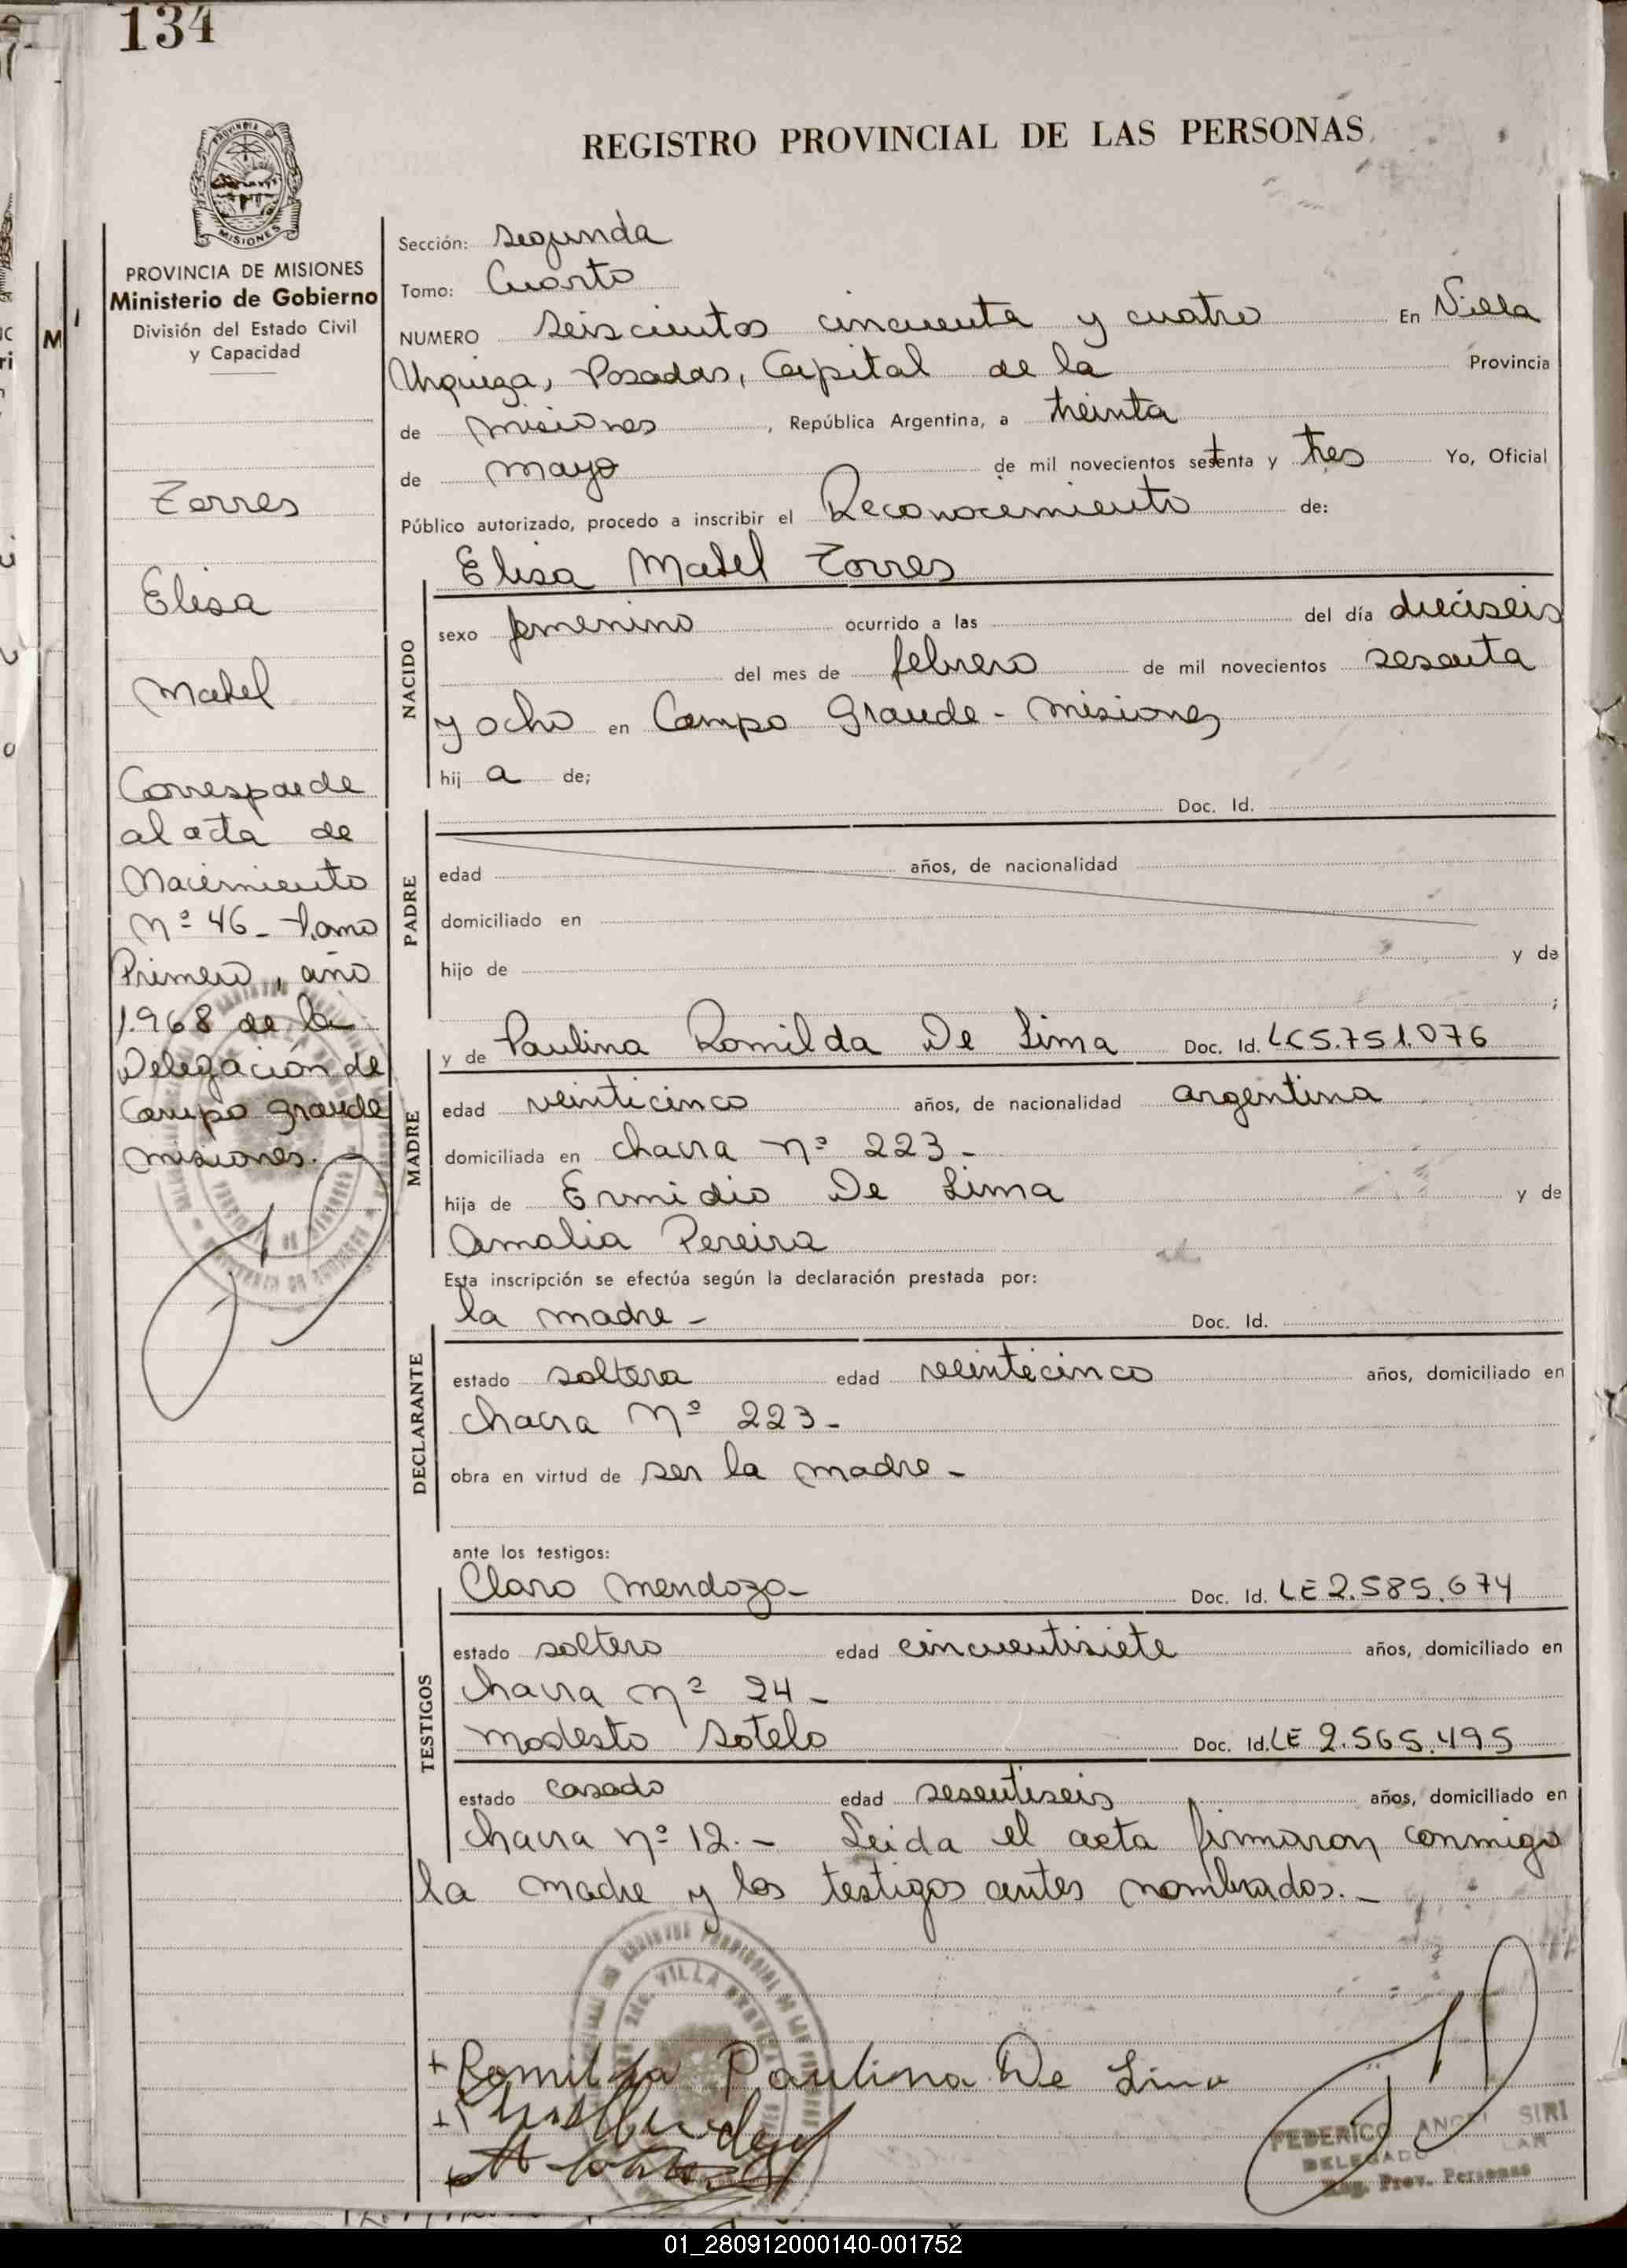 134
REGISTRO PROVINCIAL DE LAS PERSONAS
MISIONES
PROVINCIA DE MISIONES
Ministerio de Gobierno
División del Estado Civil
y Capacidad
Torres
Elisa
Mabel
Corresponde
al acta de
Nacimiento
Nº 46 - Tomo
Primero, año
1.968 de la
Delegación de
Campo Grande
Misiones.-
Sección: Segunda
Tomo: Cuarto
NUMERO Seiscientos cincuenta y cuatro En Villa
Urquiza, Posadas, Capital de la Provincia
de Misiones, República Argentina, a treinta
de mayo de mil novecientos setenta y tres Yo, Oficial
Público autorizado, procedo a inscribir el Reconocimiento de:
Elisa Mabel Torres
NACIDO
sexo femenino ocurrido a las del día dieciseis
del mes de febrero de mil novecientos sesenta
y ocho en Campo Grande - Misiones
hij a de;
Doc. Id.
PADRE
edad años, de nacionalidad
domiciliado en
hijo de y de
;
y de Paulina Romilda De Lima Doc. Id. LC 5.751.076
MADRE
edad veinticinco años, de nacionalidad argentina
domiciliada en chacra nº 223 -
hija de Ermidio De Lima y de
Amalia Pereira
Esta inscripción se efectúa según la declaración prestada por:
la madre - Doc. Id.
DECLARANTE
estado soltera edad veinticinco años, domiciliado en
chacra Nº 223 -
obra en virtud de ser la madre -
ante los testigos:
Claro Mendoza - Doc. Id. LE 2.585.674
TESTIGOS
estado soltero edad cincuentisiete años, domiciliado en
chacra nº 24 -
Modesto Sotelo Doc. Id. LE 2.565.495
estado casado edad sesentiseis años, domiciliado en
chacra nº 12. - Leida el acta firmaron conmigo
la madre y los testigos antes nombrados. -
+ Romilda Paulina De Lima
FEDERICO ANGEL SIRI
DELEGADO
Reg. Prov. Personas
01_280912000140-001752